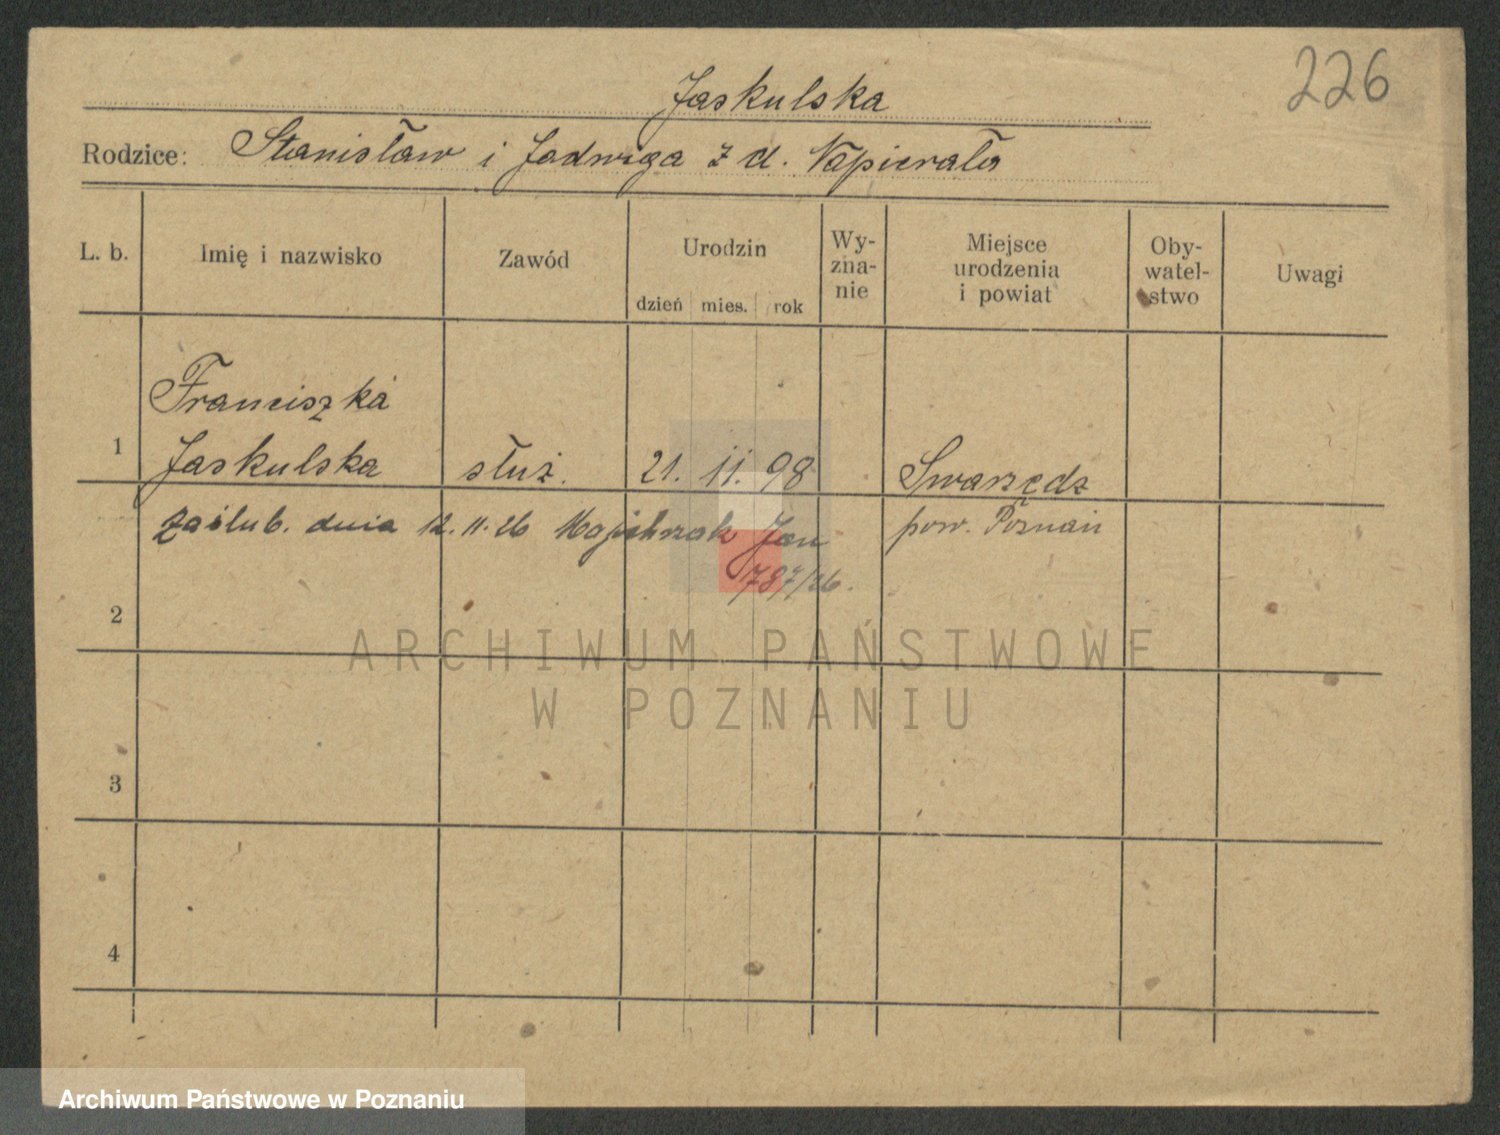 226
Jaskulska
Rodzice: Stanisław i Jadwiga z d. Napierała
L. b. Imię i nazwisko Zawód Urodzin Wy-zna-nie Miejsce urodzenia i powiat Oby-watel-stwo Uwagi
dzień mies. rok
Franciszka
1 Jaskulska służ. 21. 11. 98 Swarzędz
zaślub. dnia 12. 11. 26 Jan pow. Poznań
787/26.
2
ARCHIWUM PAŃSTWOWE
W POZNANIU
3
4
Archiwum Państwowe w Poznaniu